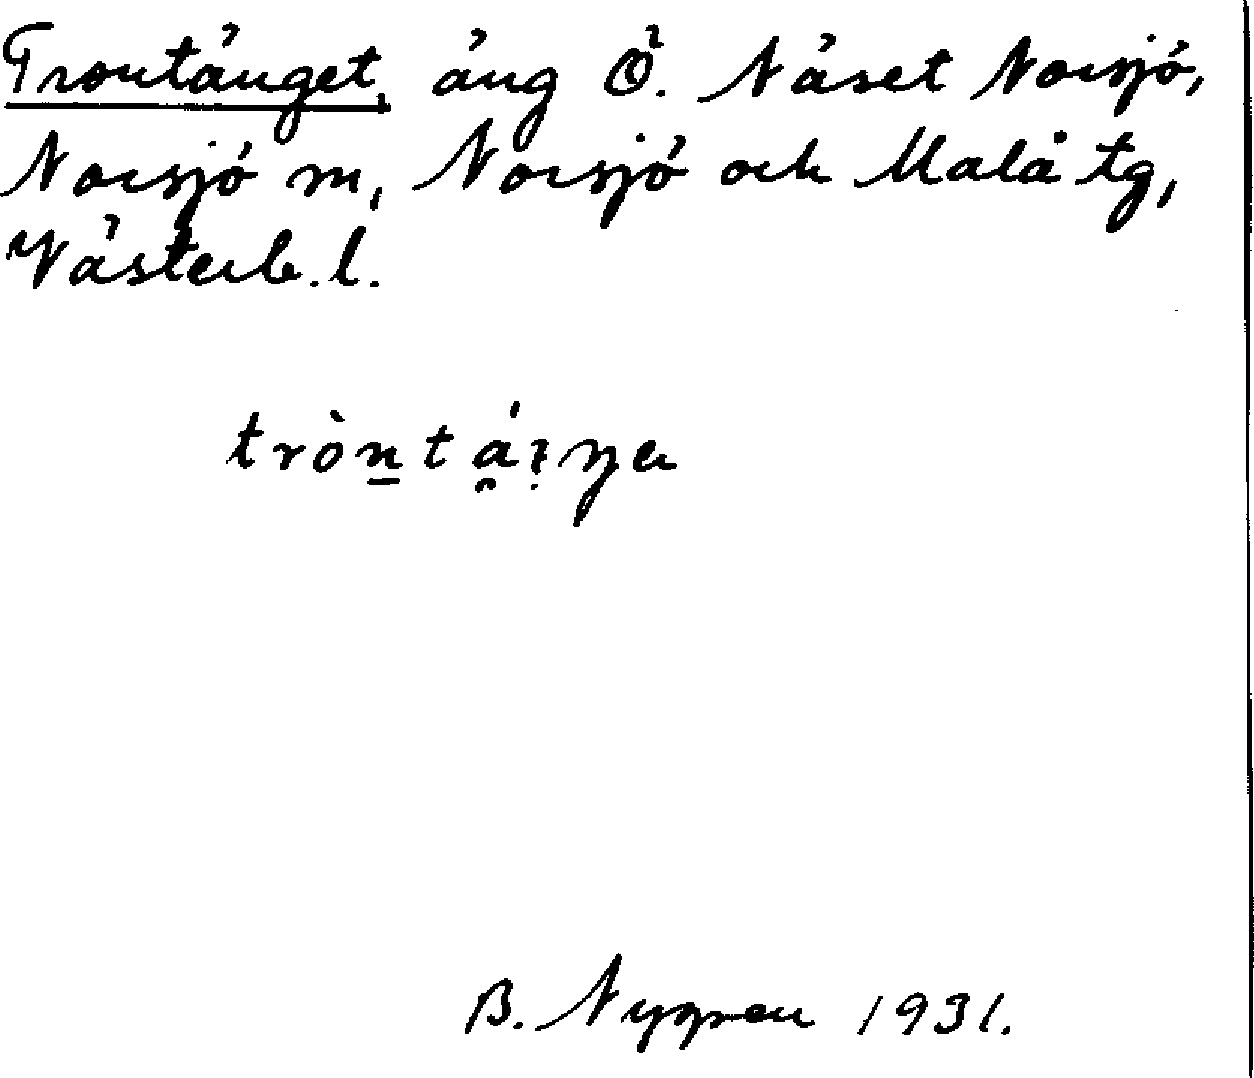 Trontänget, äng Ö. Näset Norsjö,
Norsjö m, Norsjö och Malå tg,
Västerb. l.
B. Nygren 1931.